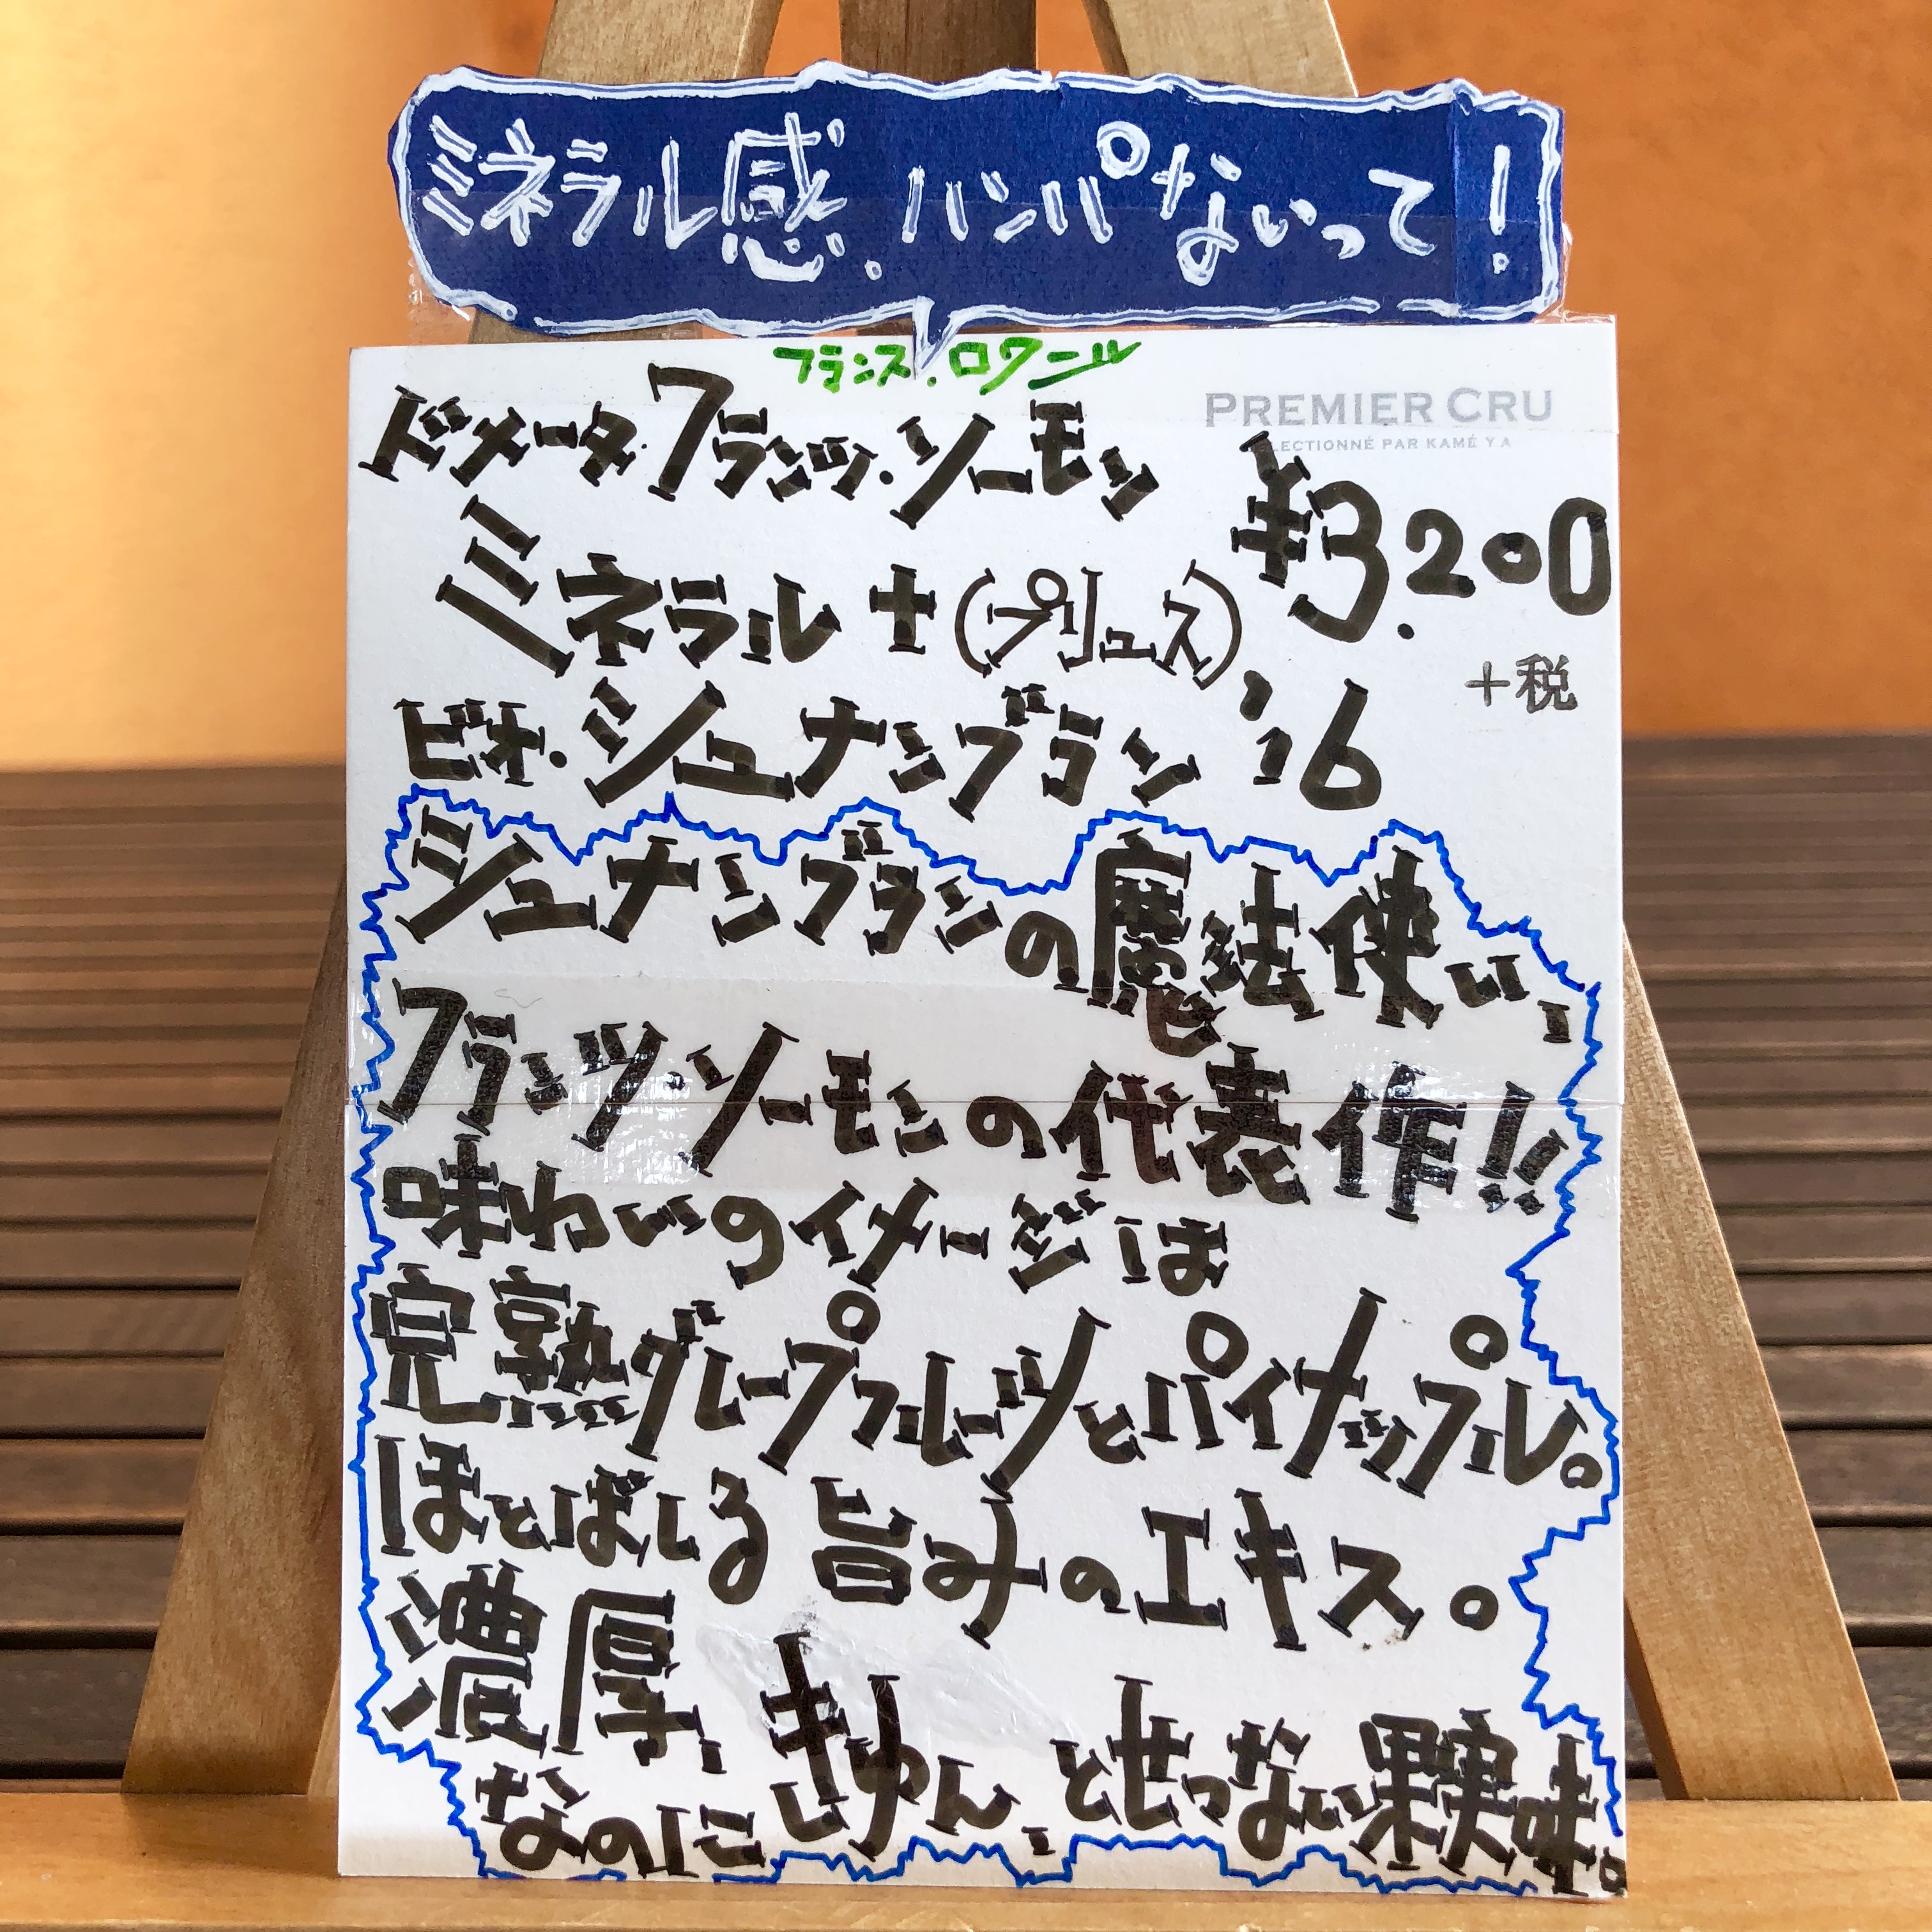 ミネラル感.ハンパないって!
フランス.ロワール
PREMIER CRU
LECTIONNÉ PAR KAMÉYA
ドメーヌ.フランツ.ソーモン
¥3.200
ミネラル+(プリュス)
+税
ビオ.シュナンブラン'16
シュナンブランの魔法使い、
フランツ.ソーモンの代表作!!
味わいのイメージは
完熟グレープフルーツとパイナップル。
ほとばしる旨みのエキス。
濃厚
なのにきゅん、とせつない果実味。